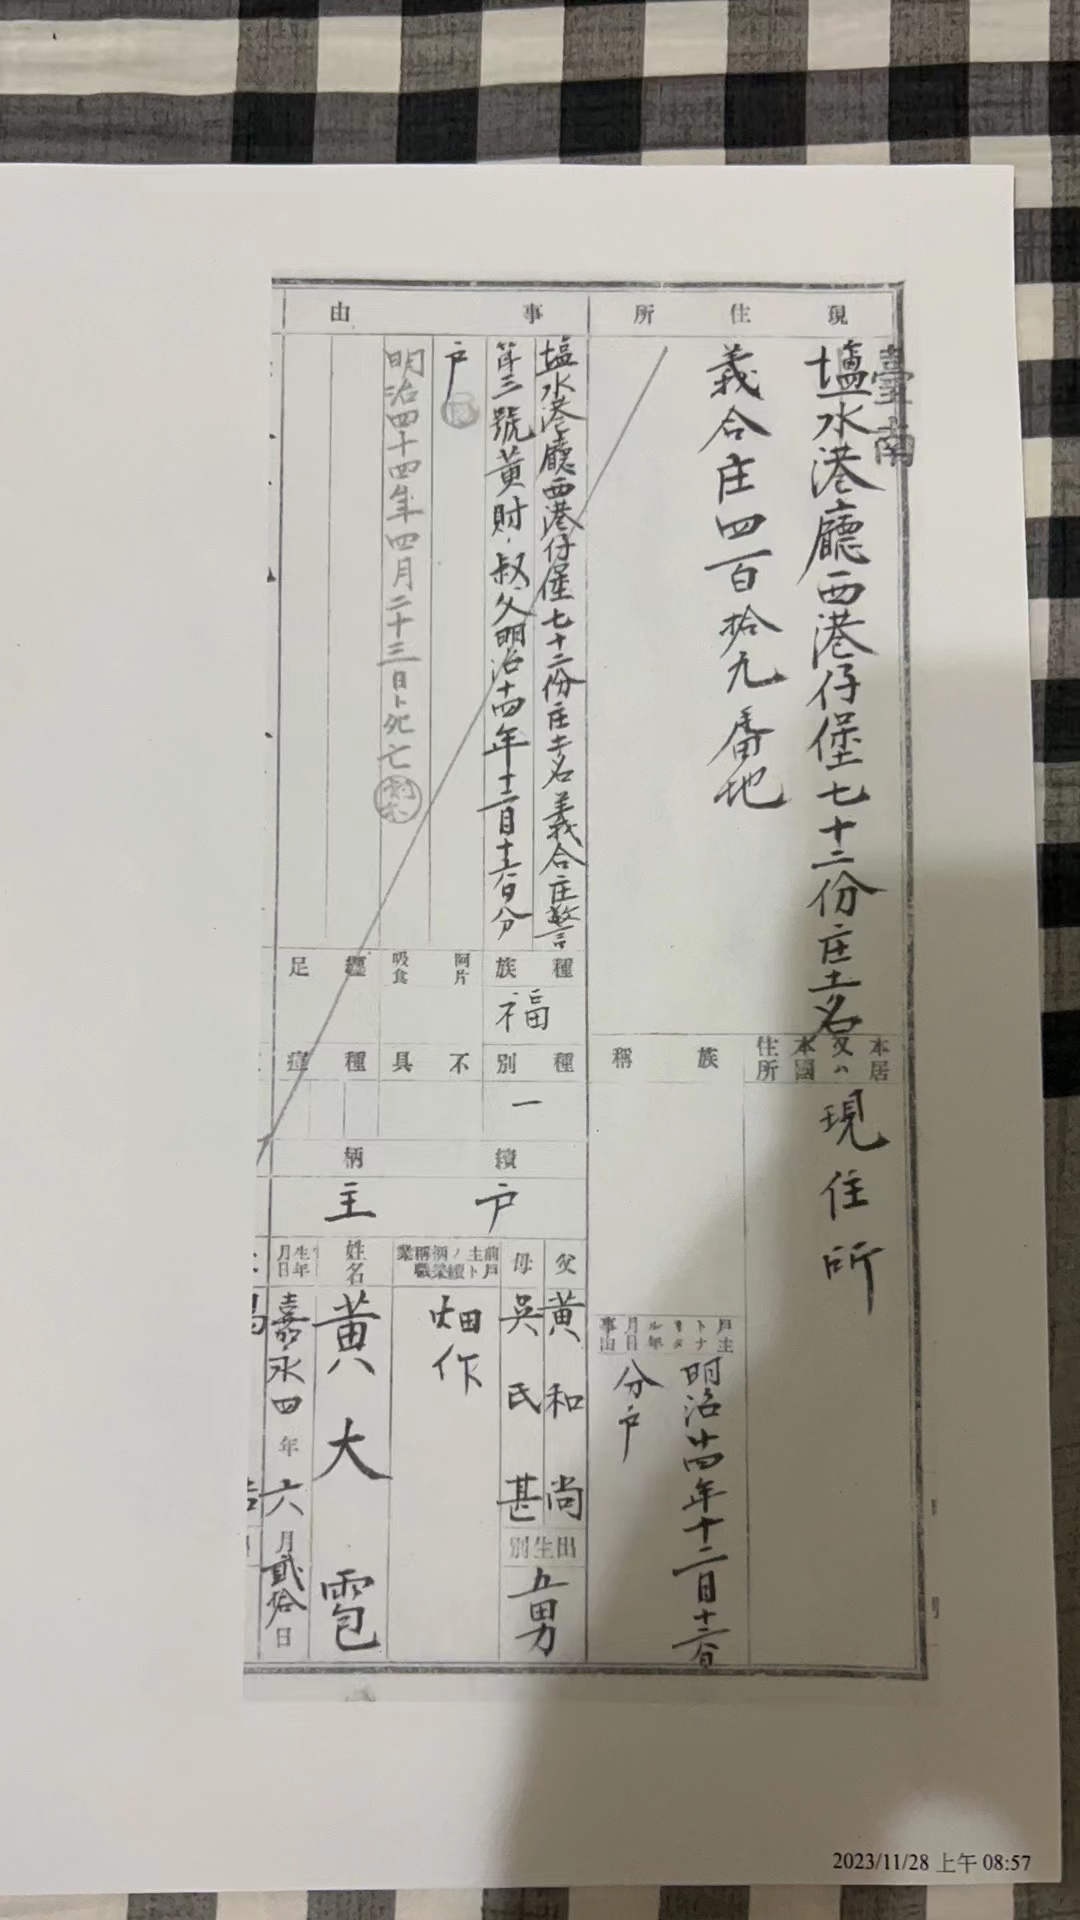 現住所
臺南
塩水港廳西港仔堡七十二份庄土名
義合庄四百拾九番地
本居又ハ本國住所
現住所
族稱
戶主トナリタル年月日事由
明治十四年十二月十六日
分戶
事由
塩水港廳西港仔堡七十二份庄土名義合庄警
第三號黃財叔父明治十四年十二月十六日分
戶
明治四十四年四月二十三日ト死亡
種族
福
阿片吸食
纏足
種別
一
不具
種痘
續柄
戶主
父
黃和尚
母
吳氏甚
出生別
五男
前戶主トノ續柄榮稱職業
畑作
姓名
黃大雹
生年月日
嘉永四年六月貳拾日
2023/11/28 上午 08:57